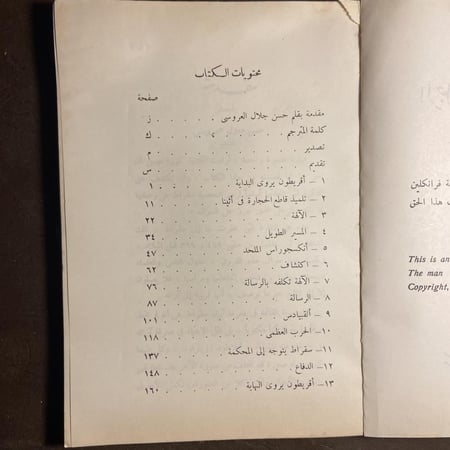 محتويات الكتاب
صفحة
مقدمة بقلم حسن جلال العروسى . . . . . ز
كلمة المترجم . . . . . ك
تصدير . . . . . م
تقديم . . . . . س
١ – أقريطون يروى البداية . . . . . ١
٢ – تلميذ قاطع الحجارة فى أثينا . . . . . ١١
٣ – الآلهة . . . . . ٢٢
٤ – المسير الطويل . . . . . ٣٤
٥ – أنكسجوراس الملحد . . . . . ٤٧
٦ – اكتشاف . . . . . ٦٢
٧ – الآلهة تكلفه بالرسالة . . . . . ٧٦
٨ – الرسالة . . . . . ٨٧
٩ – ألقبيادس . . . . . ١٠١
١٠– الحرب العظمى . . . . . ١١٨
١١– سقراط يتوجه إلى المحكمة . . . . . ١٣٧
١٢– الدفاع . . . . . ١٤٨
١٣– أقريطون يروى النهاية . . . . . ١٦٠
ة فرانكلين
هذا الحق
This is an
The man
Copyright,